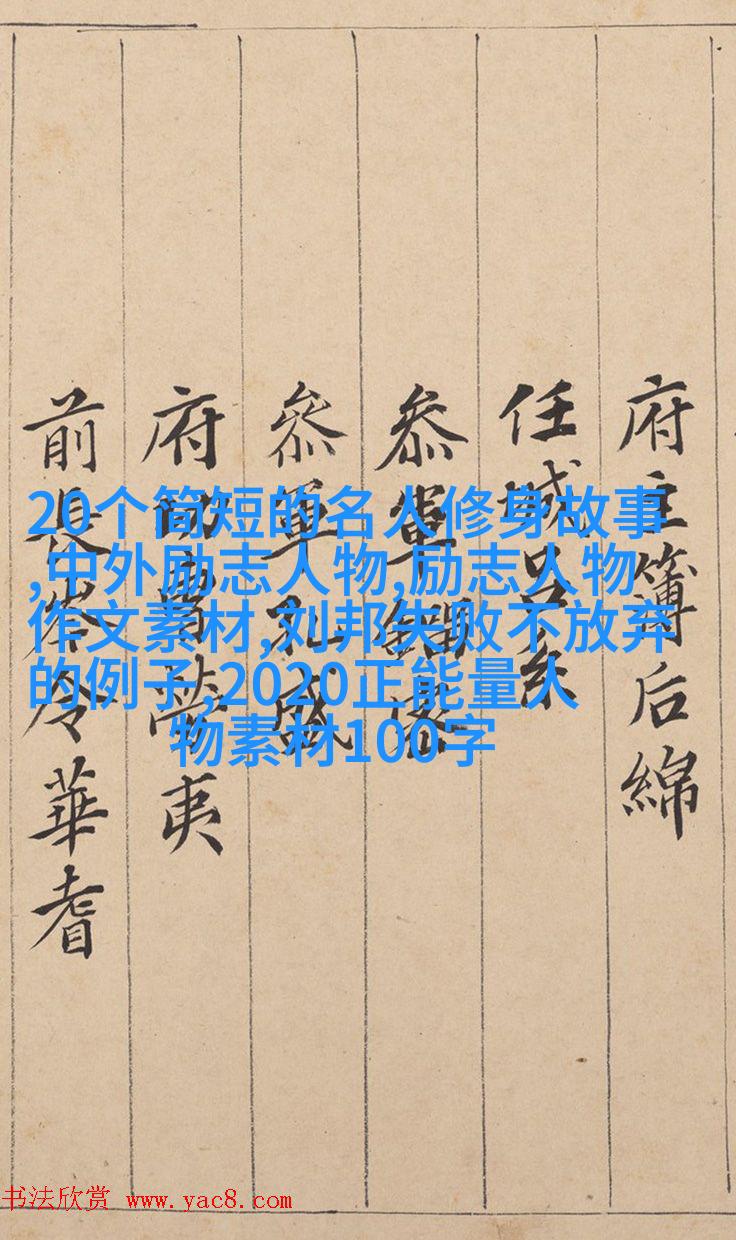 府主簿后綿
任城呂系
叅軍密
叅軍孔盛
府曹勞夷
前長岑令華耆
20个简短的名人修身故事
,中外励志人物,励志人物
作文素材,刘邦失败不放弃
的例子,2020正能量人
物素材100字
书法欣赏 www.yac8.com